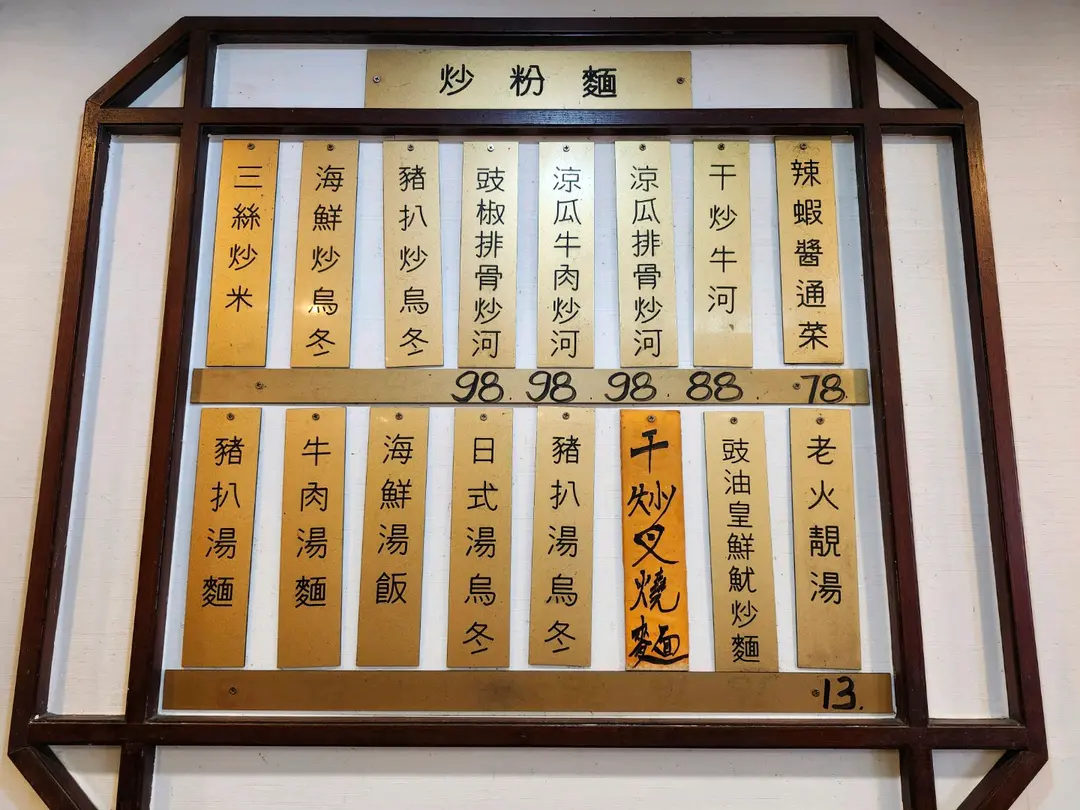 炒粉麵
辣蝦醬通菜
干炒牛河
涼瓜排骨炒河
涼瓜牛肉炒河
豉椒排骨炒河
豬扒炒烏冬
海鮮炒烏冬
三絲炒米
98. 98. 98. 88 78.
老火靚湯
豉油皇鮮魷炒麵
干炒叉燒麵
豬扒湯烏冬
日式湯烏冬
海鮮湯飯
牛肉湯麵
豬扒湯麵
13.